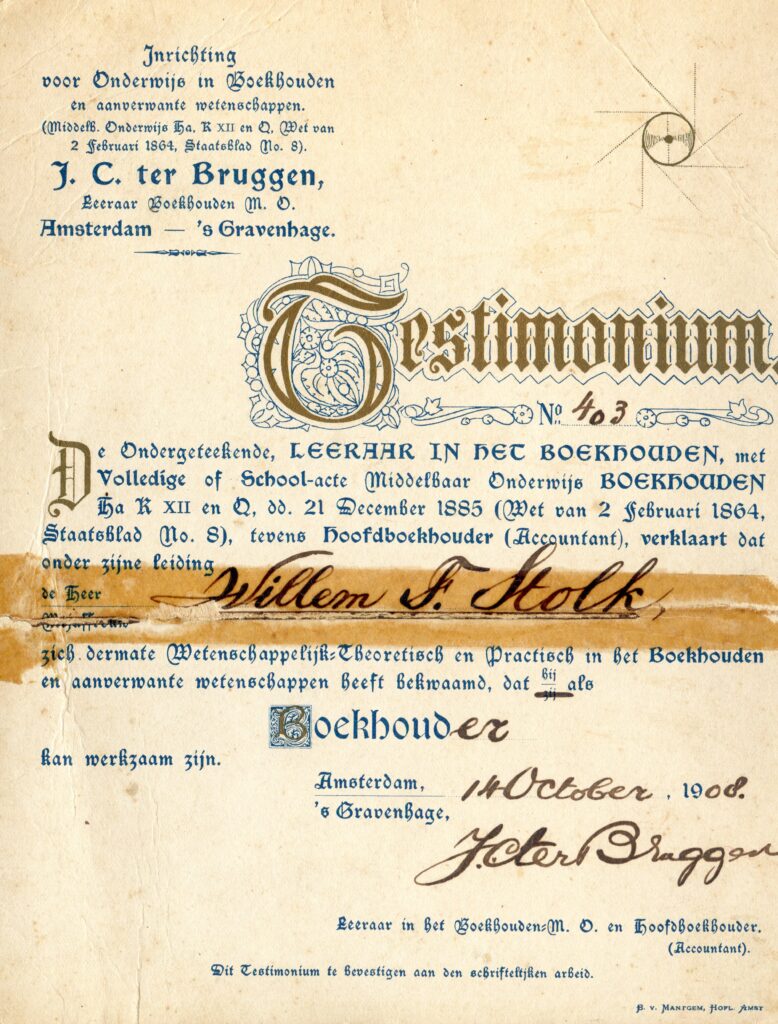 Inrichting
voor Onderwijs in Boekhouden
en aanverwante wetenschappen.
(Middelb. Onderwijs Ha. K XII en Q, Wet van
2 Februari 1864, Staatsblad No. 8).
J. C. ter Bruggen,
Leeraar Boekhouden M. O.
Amsterdam — 's Gravenhage.
Testimonium.
No. 403
De Ondergeteekende, LEERAAR IN HET BOEKHOUDEN, met
Volledige of School-acte Middelbaar Onderwijs BOEKHOUDEN
Ha K XII en Q, dd. 21 December 1885 (Wet van 2 Februari 1864,
Staatsblad No. 8), tevens Hoofdboekhouder (Accountant), verklaart dat
onder zijne leiding
de Heer Willem F. Stolk,
zich dermate Wetenschappelijk-Theoretisch en Practisch in het Boekhouden
en aanverwante wetenschappen heeft bekwaamd, dat hij
zij als
Boekhouder
kan werkzaam zijn.
Amsterdam, 14 October, 1908.
's Gravenhage,
J. C. ter Bruggen
Leeraar in het Boekhouden-M. O. en Hoofdboekhouder.
(Accountant).
Dit Testimonium te bevestigen aan den schriftelijken arbeid.
B. v. Mantgem, Hofl. Amst